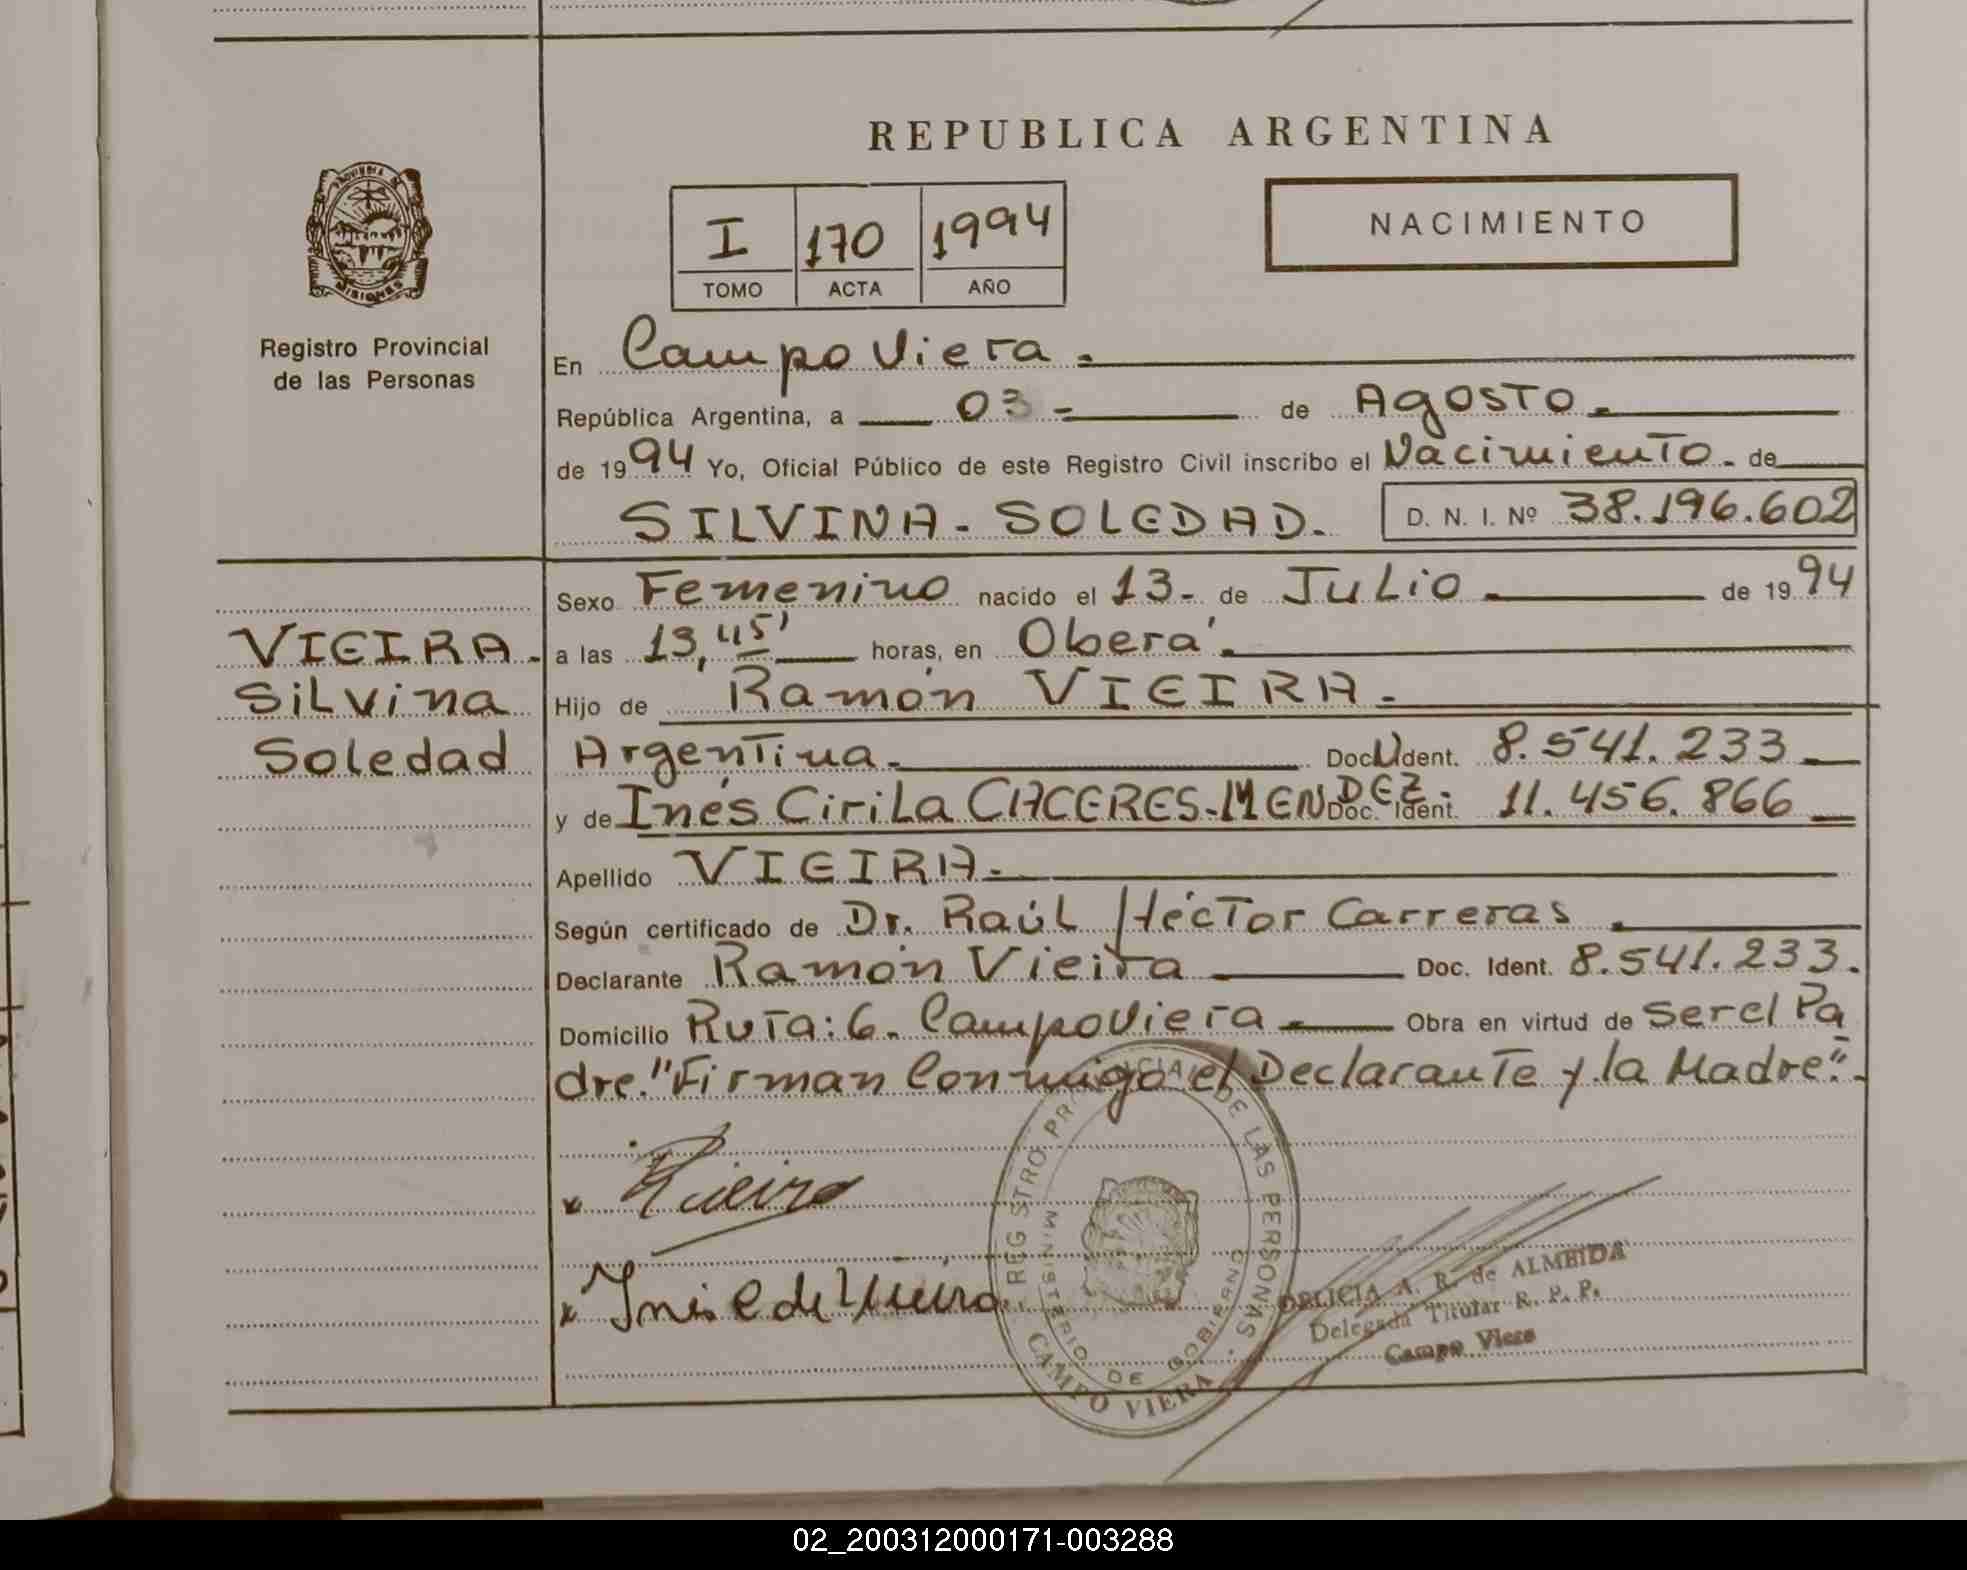 REPUBLICA ARGENTINA
PROVINCIA DE
MISIONES
Registro Provincial
de las Personas
I 170 1994
TOMO ACTA AÑO
NACIMIENTO
En Campo Viera.
República Argentina, a 03 - de Agosto.
de 1994 Yo, Oficial Público de este Registro Civil inscribo el Nacimiento. de
SILVINA - SOLEDAD. D. N. I. Nº 38.196.602
Sexo Femenino nacido el 13 - de Julio de 1994
a las 13,45' horas, en Oberá.
Hijo de Ramón VIEIRA -
Argentina. Doc. Ident. 8.541.233
y de Inés Cirila CACERES-MENDEZ. Doc. Ident. 11.456.866
Apellido VIEIRA.
Según certificado de Dr. Raúl Héctor Carreras.
Declarante Ramón Vieira Doc. Ident. 8.541.233.
Domicilio Ruta: 6. Campo Viera. Obra en virtud de ser el Pa
dre. "Firman Conmigo el Declarante y la Madre".
VIEIRA.
Silvina
Soledad
x Vieira
x Inis C de Vieira
REGISTRO PROVINCIAL DE LAS PERSONAS
MINISTERIO DE GOBIERNO
CAMPO VIERA
DELICIA A. R. de ALMEIDA
Delegada Titular R. P. P.
Campo Viera
02_200312000171-003288